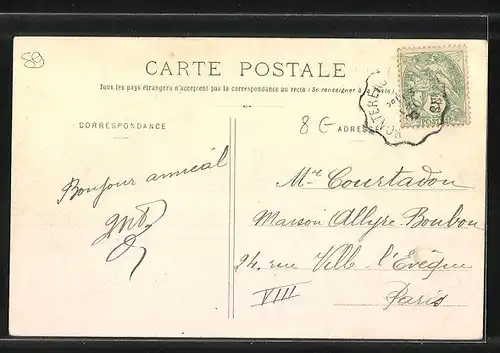 59
CARTE POSTALE
Tous les pays étrangers n'acceptent pas la correspondance au recto (Se renseigner à la Poste)
CORRESPONDANCE
8 G
ADRESSE
MONTERE
Bonjour amical
Mr Courtadon
Maison Allyre-Boubou
24, rue Ville-l'Evêque
VIII
Paris